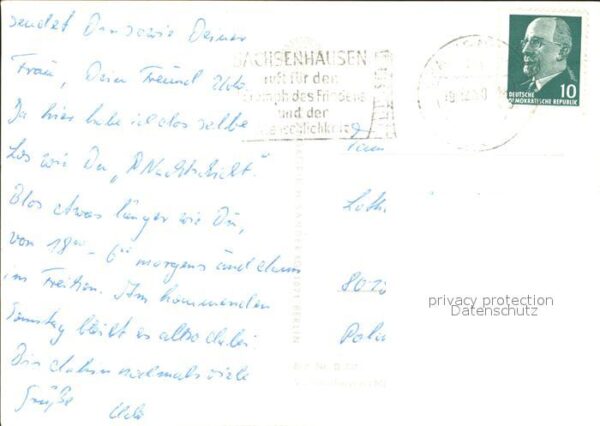 sendet Dir sowie Deiner
Frau, Dein Freund Udo.
Ja hier habe ich das selbe
Los wie Du, "Nachtschicht".
Blos etwas länger wie Du,
von 18ºº - 6ºº morgens und dann
im Freien. Am kommenden
Samstag bleibt es also dabei.
Bis dahin nochmals viele
Grüße Udo
SACHSENHAUSEN
ruft für den
Triumph des Friedens
und der
Menschlichkeit
10
DEUTSCHE
DEMOKRATISCHE REPUBLIK
Fam
Loth
80
privacy protection
Datenschutz
BERLIN